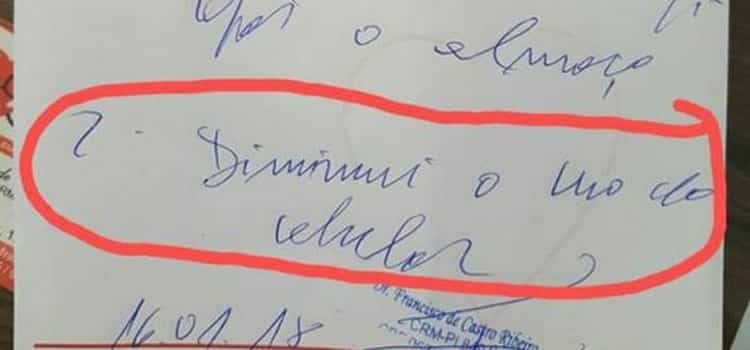 após o almoço
2. Diminui o uso do
celular
16.01.18
Dr. Francisco de Castro Ribeiro
CRM-PI